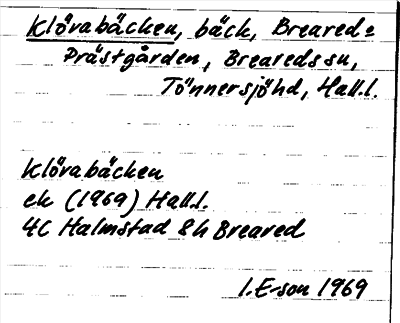 Klörabäcken, bäck, Breared=
Prästgården, Breareds sn,
Tönnersjöhd, Hall.l.
Klörabäcken
ek (1969) Hall.l.
4C Halmstad 8h Breared
I.E-son 1969